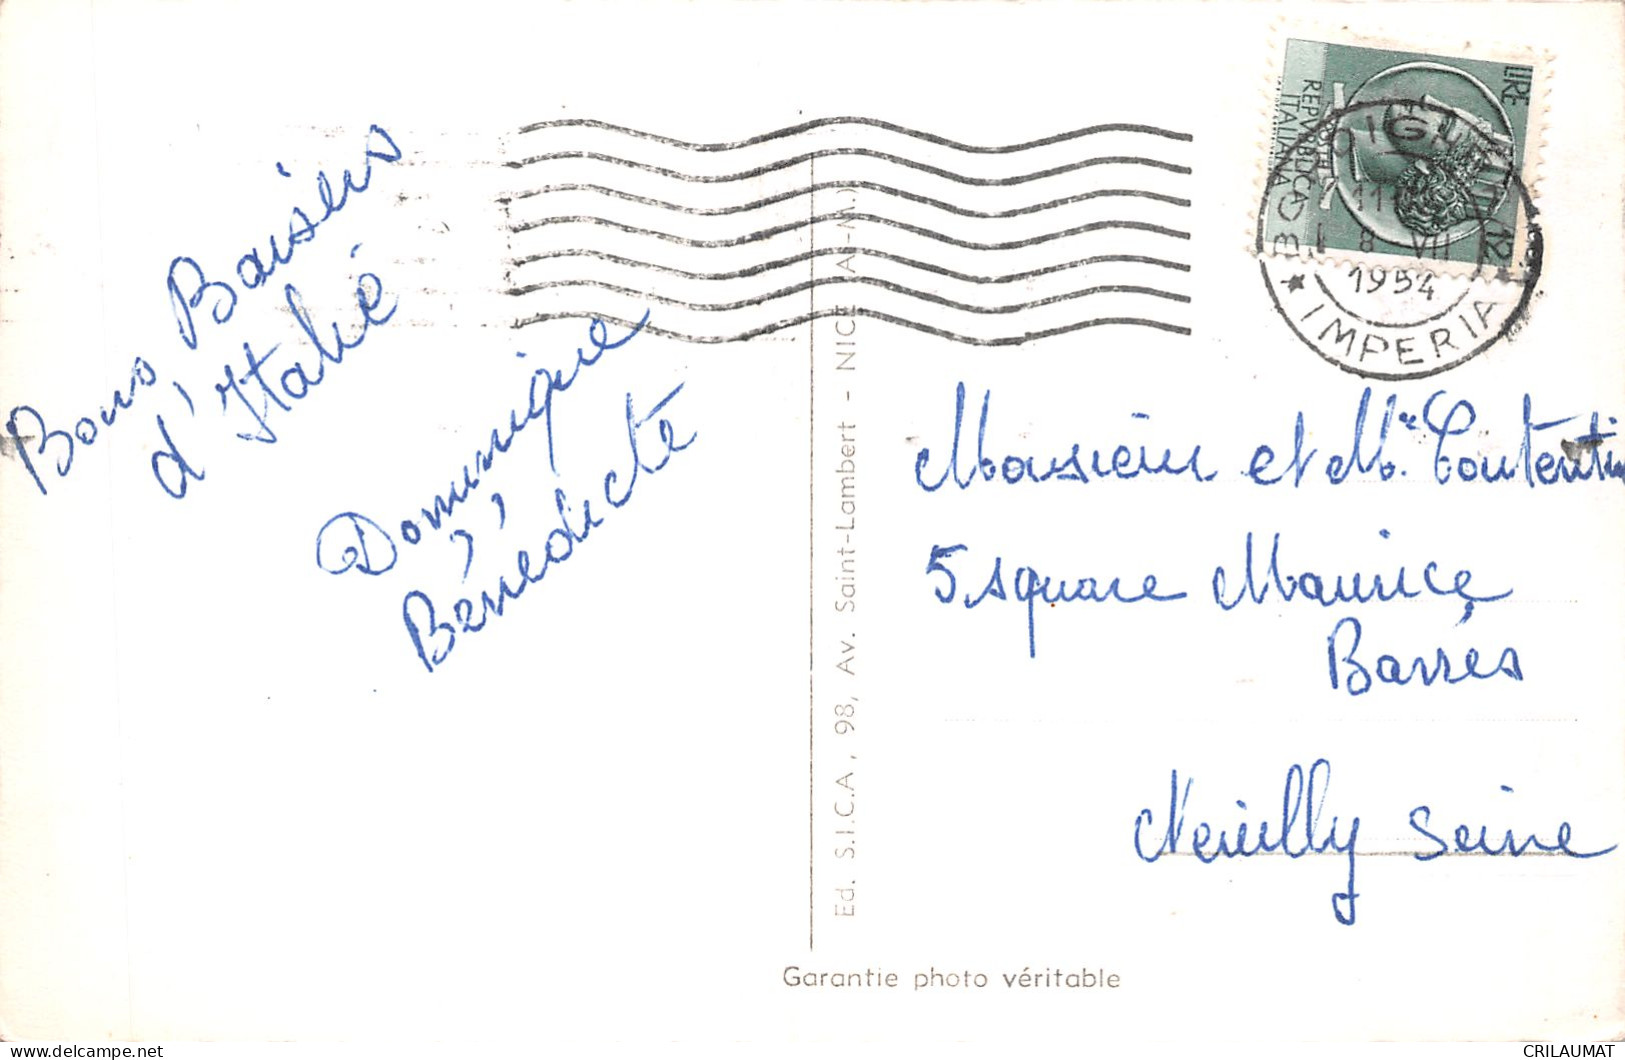 Bons Baisers
d'Italie
Dominique
Bénédicte
LIRE 12
REPVBBLICA
ITALIANA
BORDIGHERA
11
8 VII
1954
IMPERIA
Monsieur et Me Toutentin
5 square Maurice
Barrès
Neuilly Seine
Ed. S.I.C.A, 98, Av. Saint-Lambert - NICE (A-M.)
Garantie photo véritable
CRILAUMAT